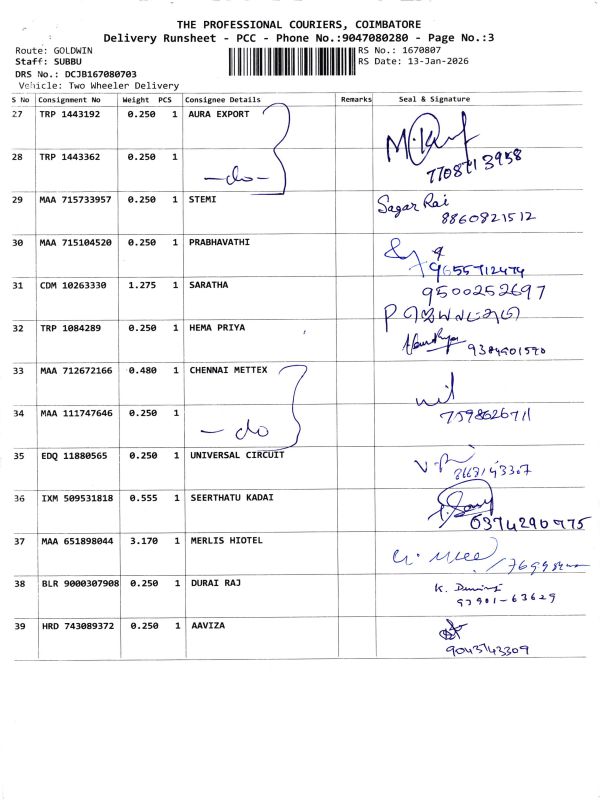 THE PROFESSIONAL COURIERS, COIMBATORE
Delivery Runsheet - PCC - Phone No.:9047080280 - Page No.:3
Route: GOLDWIN
RS No.: 1670807
Staff: SUBBU
RS Date: 13-Jan-2026
DRS No.: DCJB167080703
Vehicle: Two Wheeler Delivery
S No Consignment No Weight PCS Consignee Details Remarks Seal & Signature
27 TRP 1443192 0.250 1 AURA EXPORT
28 TRP 1443362 0.250 1 -do-
29 MAA 715733957 0.250 1 STEMI Sagar Rai
8860821512
30 MAA 715104520 0.250 1 PRABHAVATHI
9655712474
31 CDM 10263330 1.275 1 SARATHA 9500252697
32 TRP 1084289 0.250 1 HEMA PRIYA
33 MAA 712672166 0.480 1 CHENNAI METTEX
34 MAA 111747646 0.250 1 -do
7598626711
35 EDQ 11880565 0.250 1 UNIVERSAL CIRCUIT
36 IXM 509531818 0.555 1 SEERTHATU KADAI
6374290775
37 MAA 651898044 3.170 1 MERLIS HIOTEL
38 BLR 9000307908 0.250 1 DURAI RAJ
97901-63629
39 HRD 743089372 0.250 1 AAVIZA
9043743309